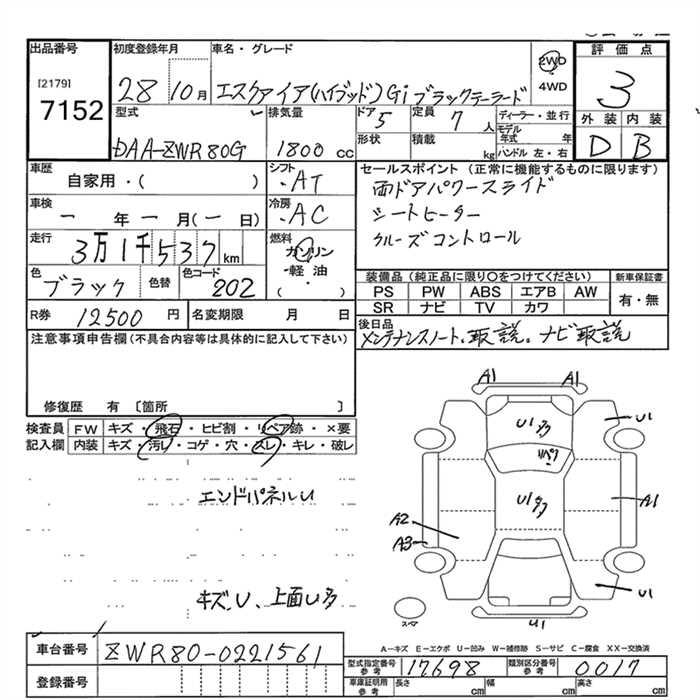 出品番号 初度登録年月 車名・グレード 評価点
[2179]
7152
28 10月 エスクァイア(ハイブッド)Gi ブラックテーラード 2WD 4WD 3
型式 排気量 ドア 5 定員 7人 ディーラー・並行 外装 内装
DAA-ZWR80G 1800 cc 形状 積載 kg モデル年式 年 D B
ハンドル 左・右
車歴 シフト セールスポイント (正常に機能するものに限ります)
自家用・( ) ・AT 両ドアパワースライド
車検 冷房 シートヒーター
一 年 一 月(一 日) ・AC クルーズコントロール
走行 3万1千537km 燃料
ガソリン
・軽油・
( )
色 色替 色コード 装備品 (純正品に限り〇をつけてください) 新車保証書
ブラック 202 PS PW ABS エアB AW 有・無
SR ナビ TV カワ
R券 12500 円 名変期限 月 日 後日品
メンテナンスノート、取説。ナビ取説
注意事項申告欄 (不具合内容等は具体的に記入して下さい)
修復歴 有 〔箇所 〕
検査員 FW キズ・飛石・ヒビ割・リペア跡・×要
記入欄 内装 キズ・汚レ・コゲ・穴・スレ・キレ・破レ
エンドパネルU
キズ、U、上面U多
A1 A1
U1多 U1
リペア
U1多 A1
A2
A3
U1
スペア U1
A-キズ E-エクボ U-凹み W-補修跡 S-サビ C-腐食 XX-交換済
車台番号 ZWR80-0221561
型式指定番号 参考 17698 類別区分番号 参考 0017
登録番号 車庫証明用 参考 長さ cm 幅 cm 高さ cm